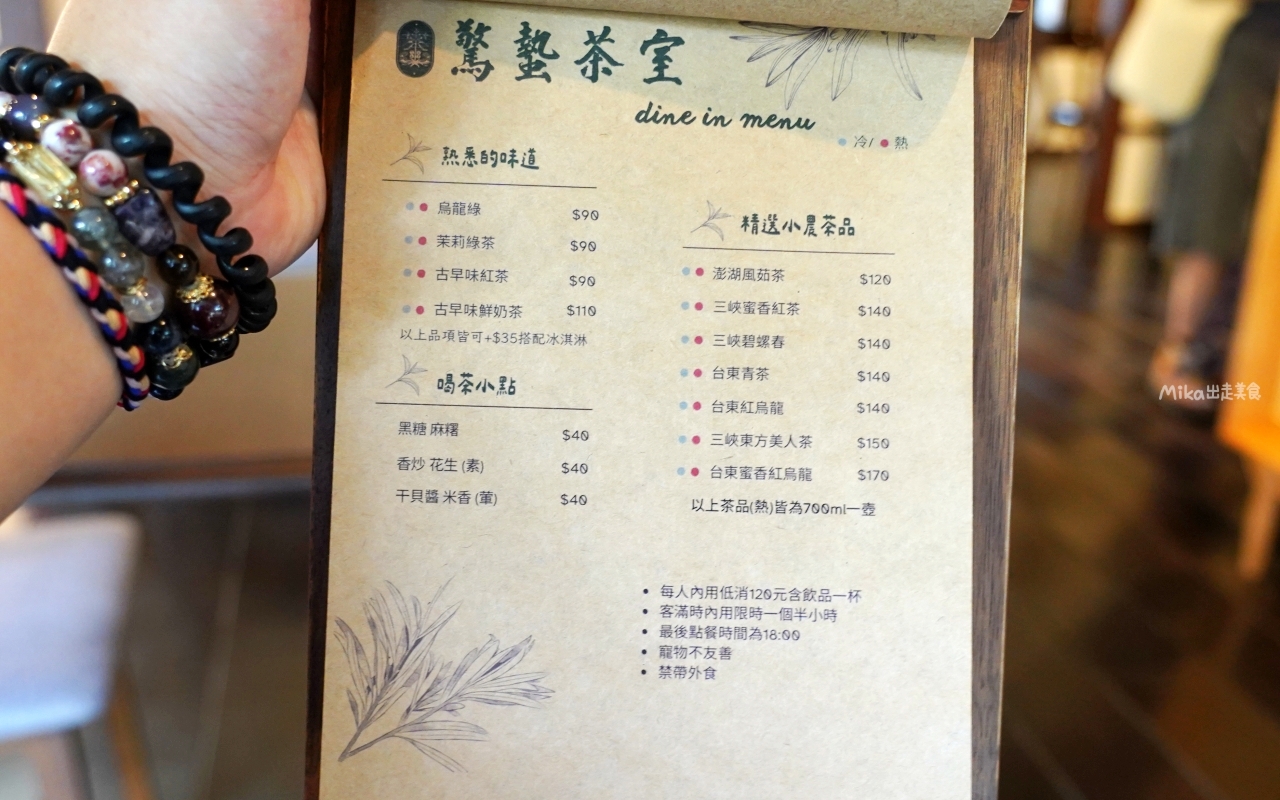 驚蟄茶室
dine in menu
冷/ 熱
熟悉的味道
烏龍綠 $90
茉莉綠茶 $90
古早味紅茶 $90
古早味鮮奶茶 $110
以上品項皆可+$35搭配冰淇淋
喝茶小點
黑糖 麻糬 $40
香炒 花生 (素) $40
干貝醬 米香 (葷) $40
精選小農茶品
澎湖風茹茶 $120
三峽蜜香紅茶 $140
三峽碧螺春 $140
台東青茶 $140
台東紅烏龍 $140
三峽東方美人茶 $150
台東蜜香紅烏龍 $170
以上茶品(熱)皆為700ml一壺
• 每人內用低消120元含飲品一杯
• 客滿時內用限時一個半小時
• 最後點餐時間為18:00
• 寵物不友善
• 禁帶外食
Mika出走美食